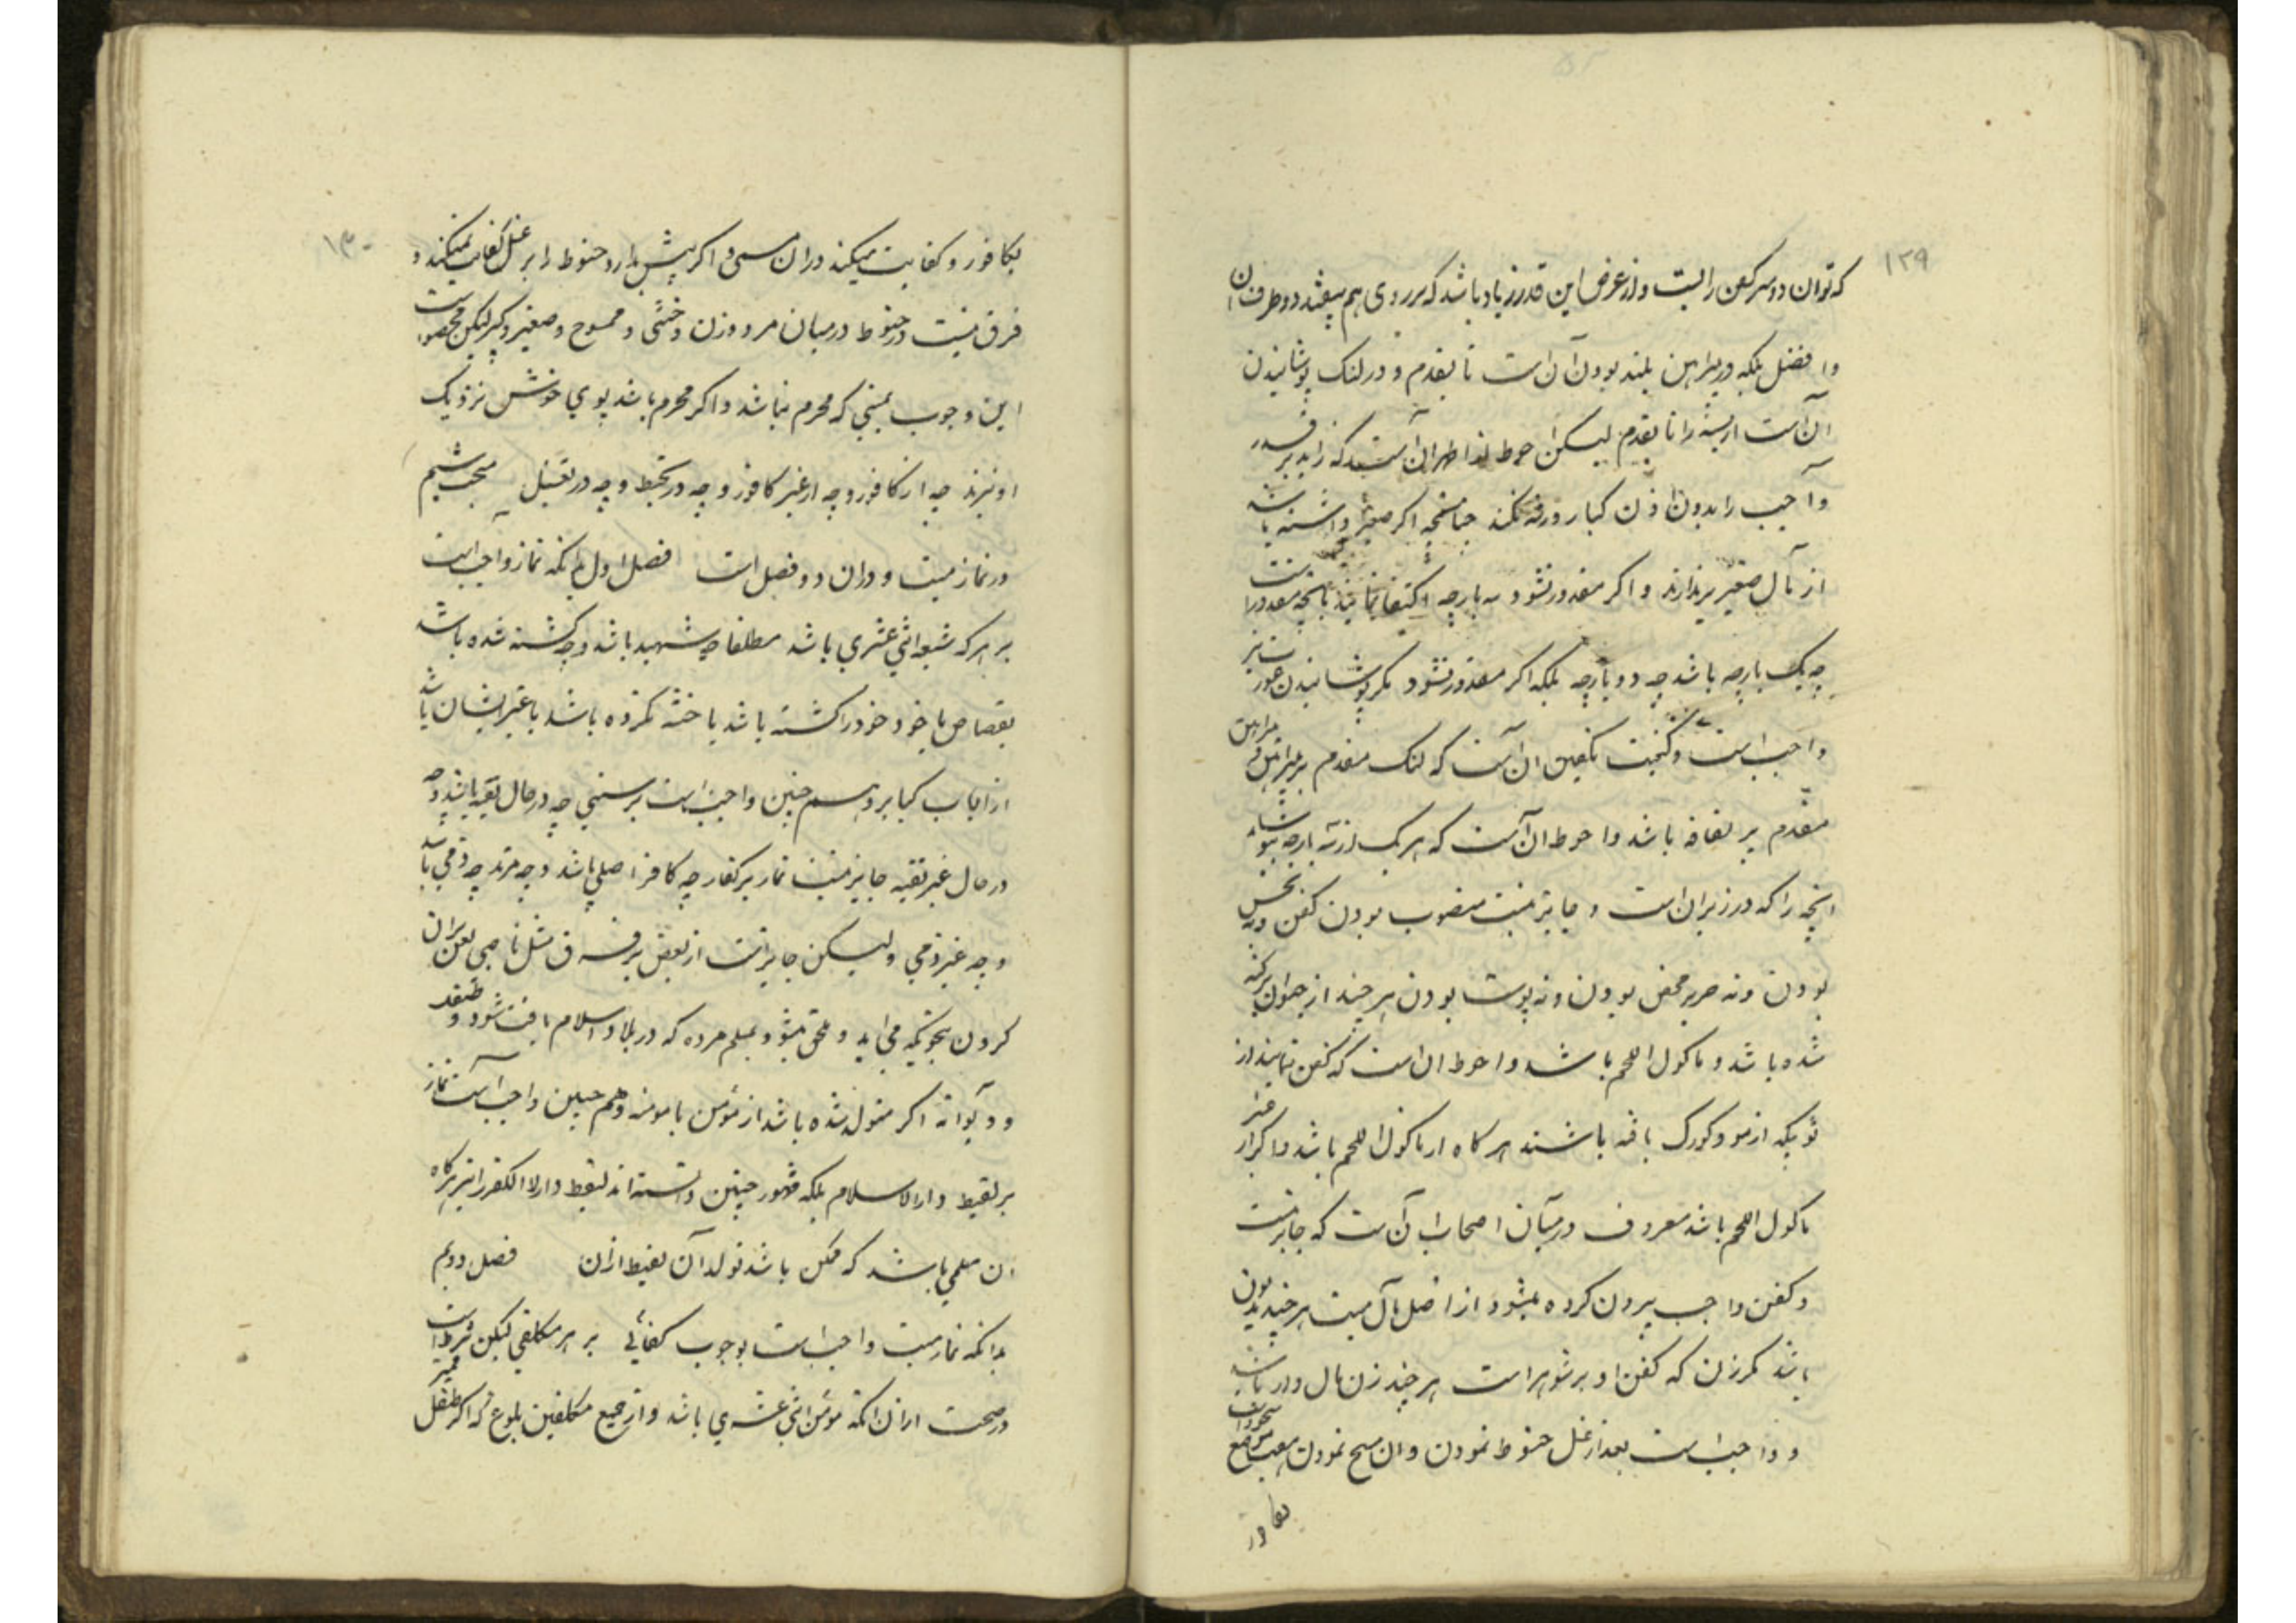 ۱۲۹
که توان دو سر کفن را بست و از عرض این قدر زیاد باشد که بر روی هم بیفتد دو طرف ان
و افضل بلکه در پیراهن بلند بودن آن است تا بقدم و در لنک پوشانیدن
ان است از سینه را تا بقدم لیکن احوط
و آجب را بدون اذن کبار ورثه نکند چنانچه اگر صغیر داشته باشد
از مآل صغیر برندارند و اکر مقدور نشود سه پارچه اکتفا نمایند بانچه مقدور است
چه یک پارچه باشد چه دو پارچه بلکه اکر مقدور نشود مکر پوشانیدن عورتین
واجب است و کیفیت تکفین ان است که لنک مقدم بر پیراهن و پیراهن
مقدم بر لفافه باشد و احوط ان آست که هر یک از سه پارچه بپوشاند
انچه را که در زیر ان است و جایز نیست مغصوب بودن کفن و نه نجس
بودن و نه حریر محض بودن و نه پوست بودن هر چند از حیوان تزکیه
شده باشد و ماکول اللحم باشد و احوط ان است که کفن ننمایند از
ثوبیکه از مو و کورک بافته باشند هرکاه از ماکول اللحم باشد و اکر از غیر
ماکول اللحم باشد معروف در میآن اصحاب آن ست که جایز نیست
و کفن واجب بیرون کرده میشود از اصل مآل میت هر چند مدیون
باشد مکر زن که کفن او بر شوهر است هر چند زن مال دار باشد
و واجب است بعد از غسل حنوط نمودن و ان مسح نمودن هفت موضع سجود است
بکافور
۱۳۰
بکافور و کفایت میکند در ان مسمی و اکر پیش بدارد حنوط را بر غسل کفایت نمیکند و
فرق نیست در حنوط در میان مرد و زن و خنثی و ممسوح و صغیر و کبیر لیکن مخصوص است
این وجوب بمیتی که محرم نباشد و اکر محرم باشد بوی خوش نزدیک
او نبرند چه از کافور و چه از غیر کافور و چه در تحنیط و چه در تغسیل مبحث ششم
در نماز میت و در ان دو فصل است فصل اول بدانکه نماز واجب است
بر هر که شیعه اثنی عشری باشد مطلقا چه شهید باشد و چه کشته شده باشد
بقصاص یا خود خود را کشته باشد یا ختنه نکرده باشد یا غیر ایشان باشد
از ارباب کبایر و هم چنین واجب است بر سنی چه در حال تقیه باشد و چه
در حال غیر تقیه جایز نیست نماز بر کفار چه کافر اصلی باشد و چه مرتد چه ذمی باشد
و چه غیر ذمی و لیکن جایز است از بعض بر فرق مثل ناصبی لعن بر ان
کردن بنحویکه می اید و ملحق میشود بمسلم مرده که در بلاد اسلام یافت شود و طفل
و دیوانه اکر متولد شده باشد از مؤمن یا مومنه و هم چنین واجب است نماز
بر لقیط دار الاسلام بلکه مشهور چنین دانسته اند لقیط دار الکفر را نیز هرکاه
ان مسلمی باشد که ممکن باشد تولد آن لقیط از ان فصل دویم
بدانکه نماز میت واجب است بوجوب کفائی بر هر مکلفی لیکن شرط است
در صحت ان از انکه مؤمن اثنی عشری باشد و از جمیع مکلفین بلوغ که اکر طفل ممیز